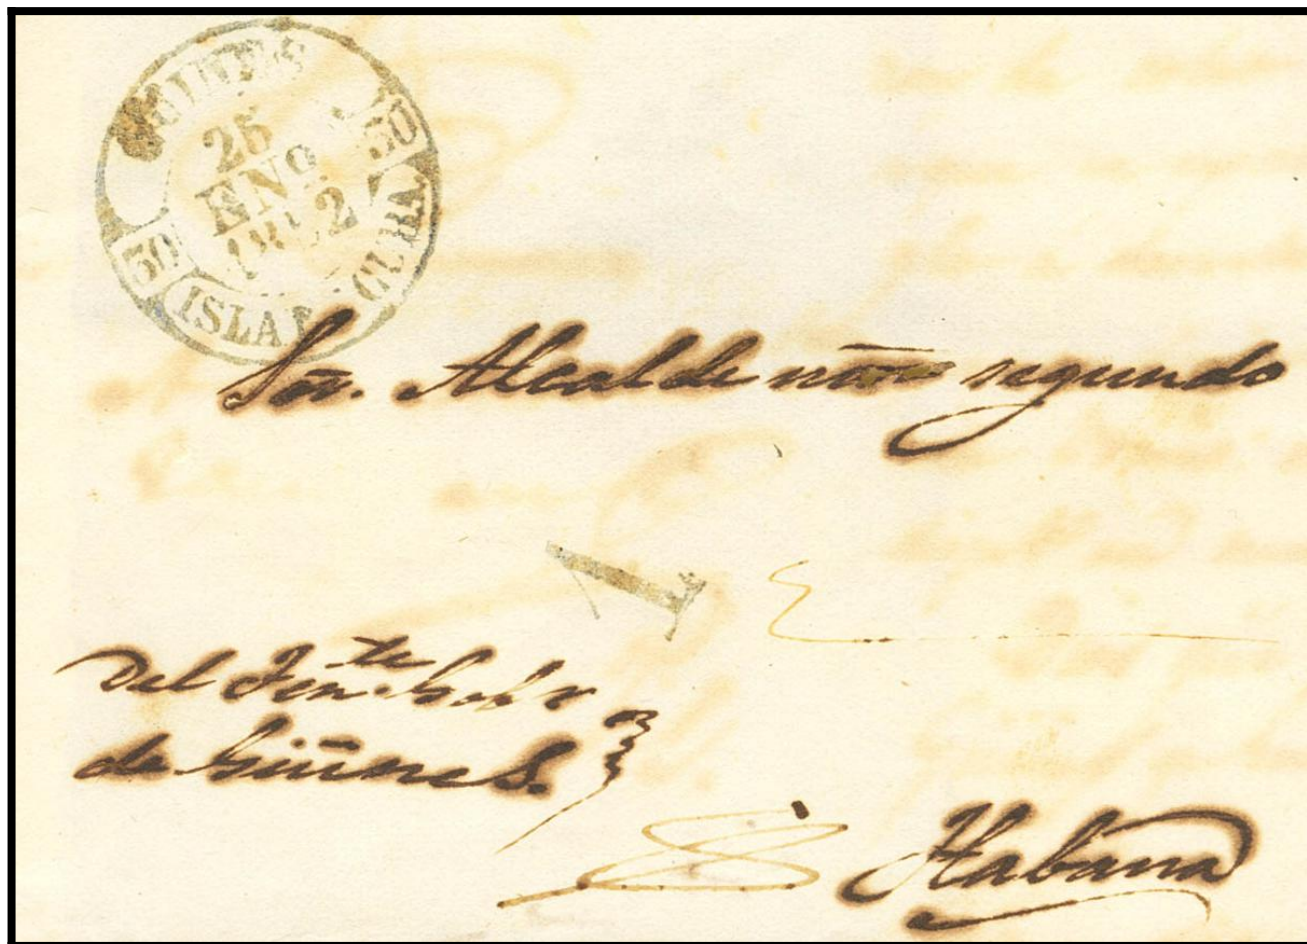 GUINES
25
ENº
30
30
ISLA CUBA.
Sor. Alcalde mor segundo
1
Del Tente Gobr
de Güines.
Habana